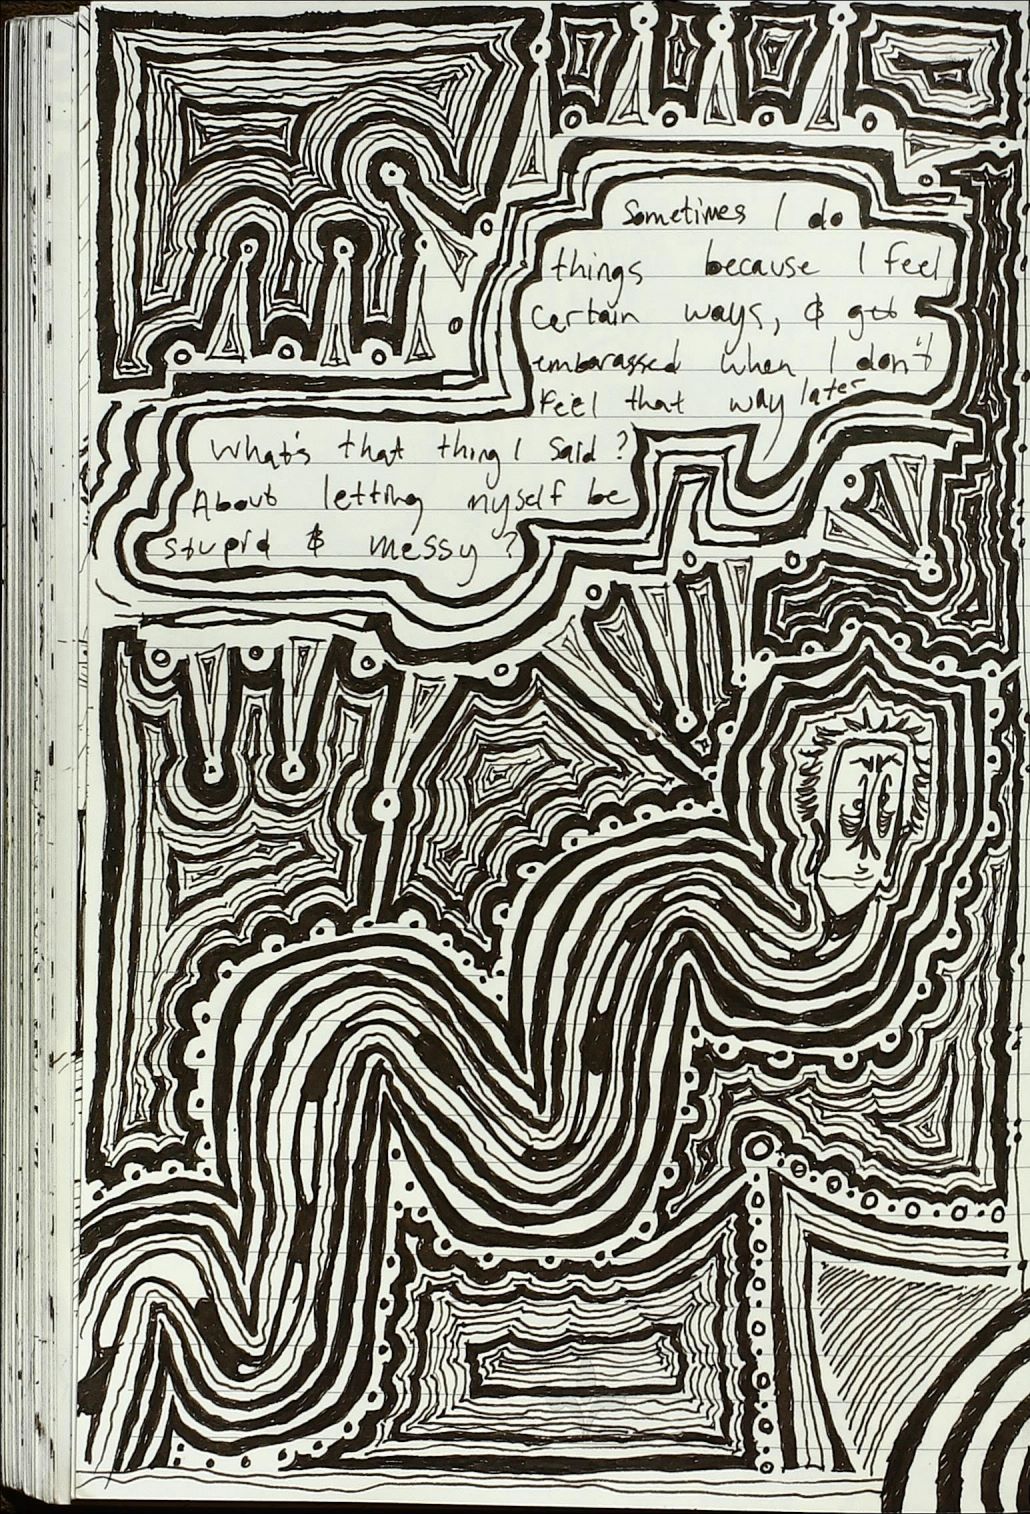 Sometimes I do
things because I feel
certain ways, & get
embarassed when I don't
feel that way later
What's that thing I said?
About letting myself be
stupid & messy?